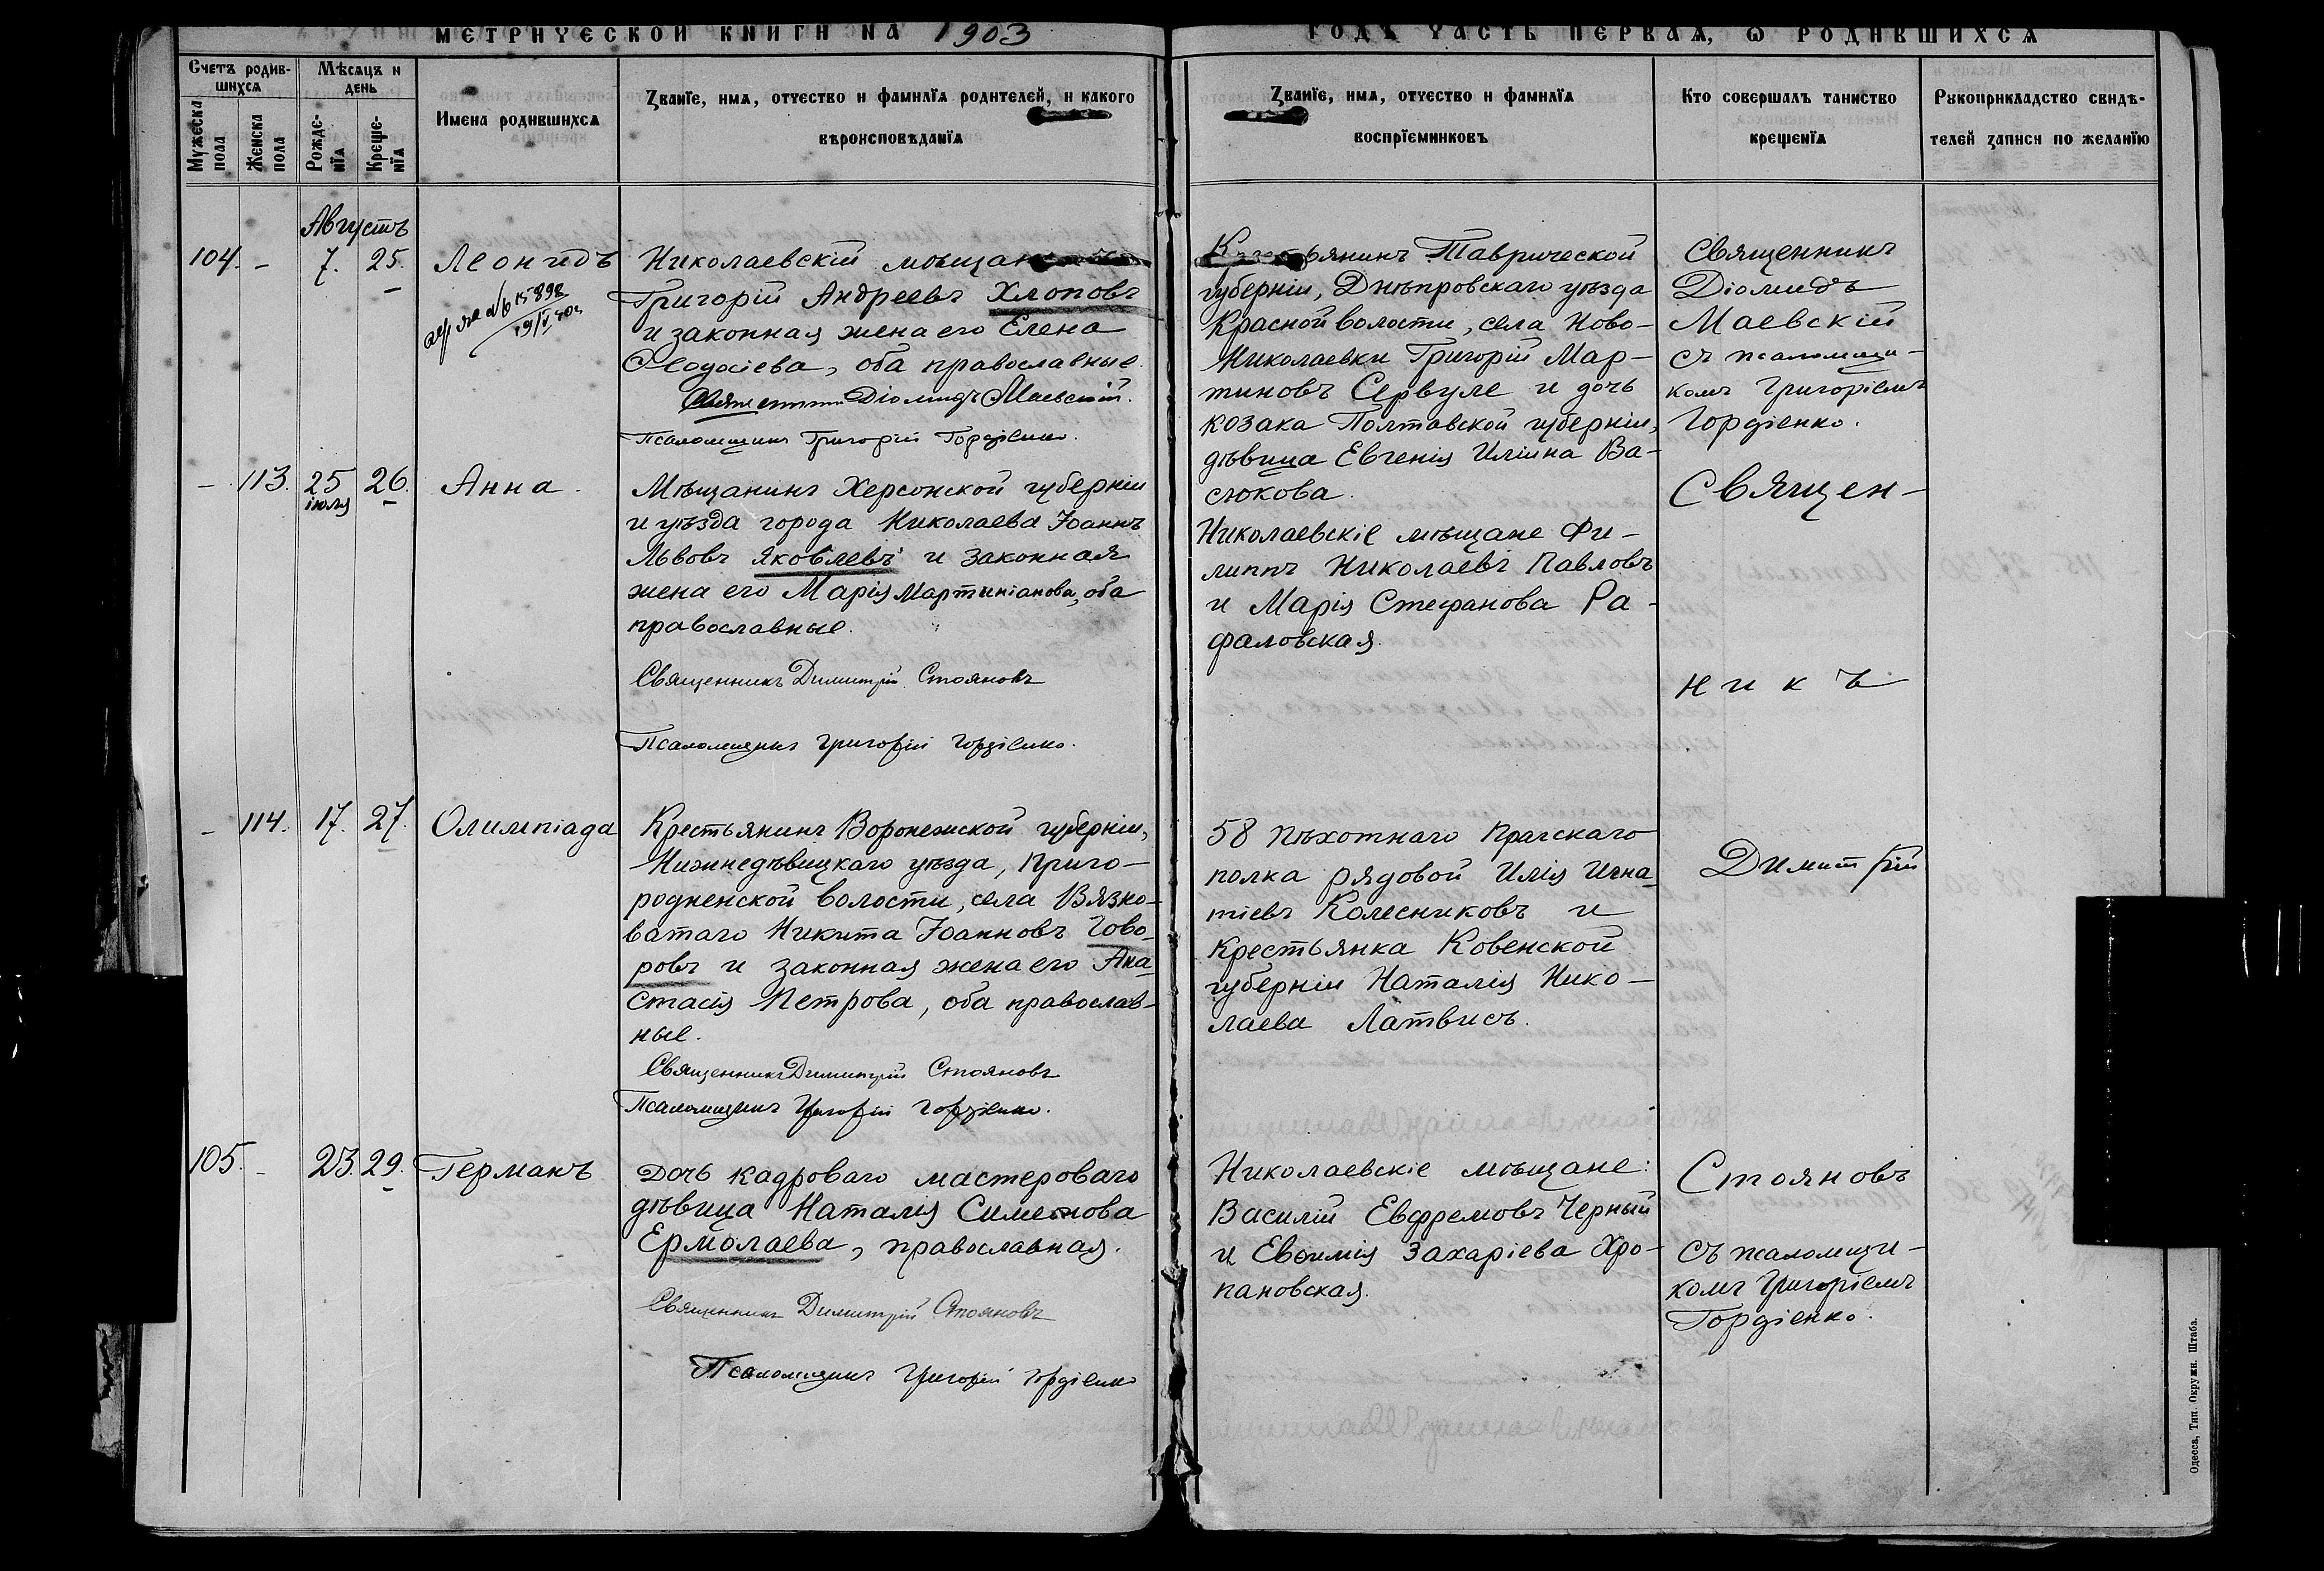 МЕТРИЧЕСКОЙ КНИГИ НА 1903
ГОДЪ ЧАСТЬ ПЕРВАѦ, Ѡ РОДИВШИХСѦ
Счетъ родив-
шихсѧ
Мужеска
пола
Женска
пола
Мѣсѧцъ и
день
Рожде-
нїѧ
Креще-
нїѧ
Имена родившихсѧ
Званїе, имѧ, отчество и фамилїѧ родителей, и какого
вѣроисповѣданїѧ
Званїе, имѧ, отчество и фамилїѧ
воспрїемниковъ
Кто совершалъ таинство
крещенїѧ
Рукоприкладство свидѣ-
телей записи по желанїю
Августъ
104. - 7. 25. Леонидъ
15898
Николаевскій мѣщанинъ
Григорій Андреевъ Хлоповъ
и законная жена его Елена
Ѳеодосіева, оба православные.
Священникъ Діомидъ Маевскій.
Псаломщикъ Григорій Гордіенко.
Крестьянинъ Таврической
губерніи, Днѣпровскаго уѣзда
Красной волости, села Ново-
Николаевки Григорій Мар-
тиновъ Сервуле и дочь
козака Полтавской губерніи,
дѣвица Евгенія Иліина Ва-
сюкова.
Священникъ
Діомидъ
Маевскій
съ псаломщи-
комъ Григоріемъ
Гордіенко.
- 113. 25 июля 26. Анна.
Мѣщанинъ Херсонской губерніи
и уѣзда города Николаева Іоаннъ
Львовъ Яковлевъ и законная
жена его Марія Мартиніанова, оба
православные.
Священникъ Димитрій Стояновъ
Псаломщикъ Григорій Гордіенко.
Николаевскіе мѣщане Фи-
липпъ Николаевъ Павловъ
и Марія Стефанова Ра-
фаловская.
Священ-
никъ
- 114. 17. 27. Олимпіада
Крестьянинъ Воронежской губерніи,
Нижнедѣвицкаго уѣзда, Приго-
родненской волости, села Вязно-
ватаго Никита Іоанновъ Гово-
ровъ и законная жена его Ана-
стасія Петрова, оба православ-
ные.
Священникъ Димитрій Стояновъ
Псаломщикъ Григорій Гордіенко.
58 пѣхотнаго Прагскаго
полка рядовой Илія Игна-
тіевъ Колесниковъ и
крестьянка Ковенской
губерніи Наталія Нико-
лаева Латвисъ.
Димитрій
105. - 23. 29. Германъ
Дочь кадроваго мастероваго
дѣвица Наталія Симеонова
Ермолаева, православная.
Священникъ Димитрій Стояновъ
Псаломщикъ Григорій Гордіенко
Николаевскіе мѣщане:
Василій Евфремовъ Черный
и Евѳимія Захаріева Хро-
пановская.
Стояновъ
съ псаломщи-
комъ Григоріемъ
Гордіенко.
Одесса, Тип. Окружн. Штаба.